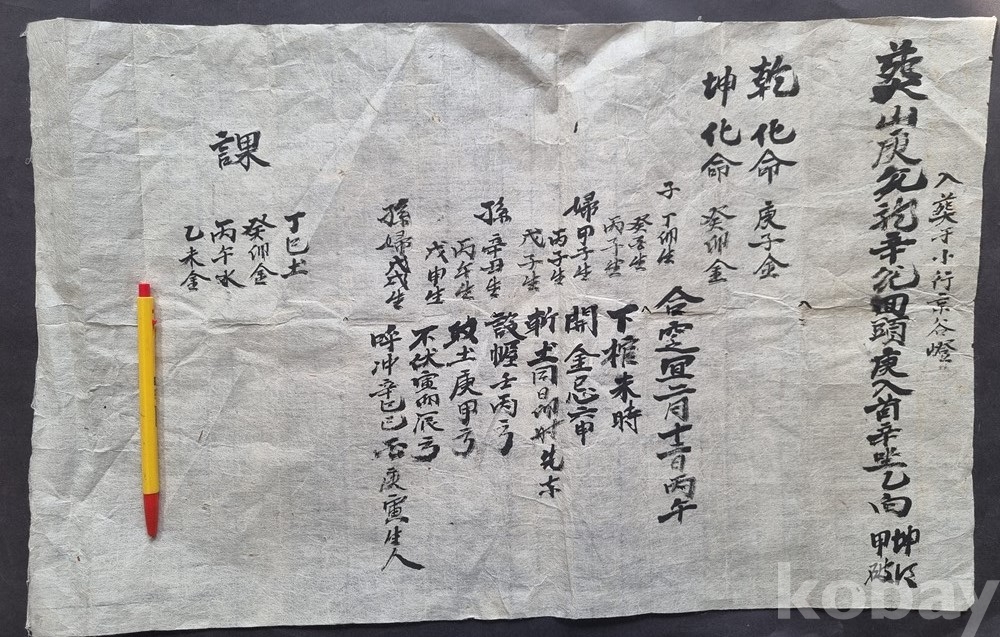 葬山庚兌乾辛兌回頭庚入首辛坐乙向
坤得
甲破
入葬于小行京谷嶝
乾化命 庚子金
坤化命 癸卯金
子 丁卯生
癸亥生
丙子生
婦 甲子生
丙子生
戊子生
孫 辛丑生
丙午生
戊申生
孫婦 生
合窆宜二月十二日丙午
下棺未時
開金忌六甲
斬土同日卯時先東
設幄壬丙方
破土庚甲方
不伏寅丙辰方
呼冲辛巳己 庚寅生人
課
丁巳土
癸卯金
丙午水
乙未金
kobay